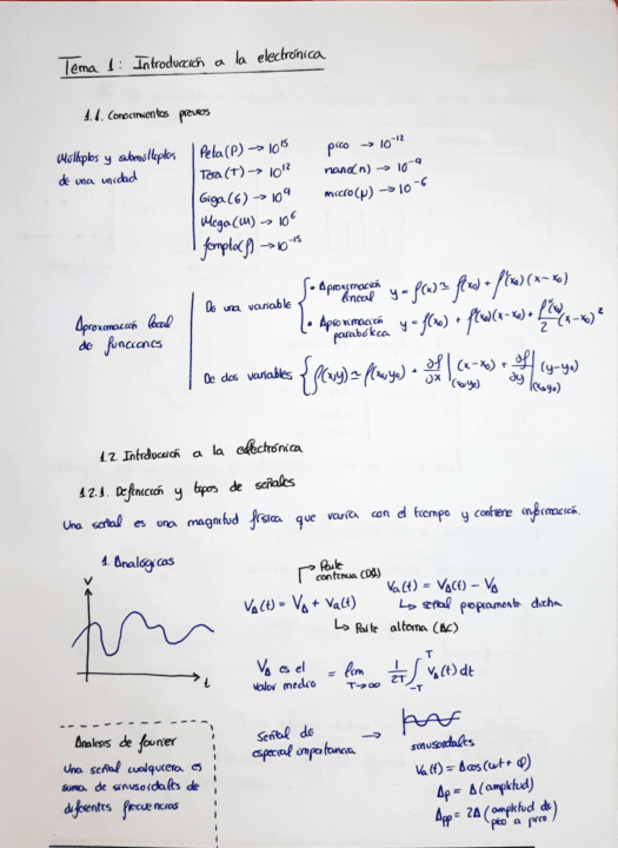 Tema 1: Introducción a la electrónica
1.1. Conocimientos previos
Múltiplos y submúltiplos
de una unidad
Peta (P) → 10^15
Tera (T) → 10^12
Giga (G) → 10^9
Mega (M) → 10^6
femto (f) → 10^-15
pico → 10^-12
nano (n) → 10^-9
micro (μ) → 10^-6
Aproximación local
de funciones
De una variable
• Aproximación
lineal y = f(x) ≃ f(x₀) + f'(x₀)(x-x₀)
• Aproximación
parabólica y = f(x₀) + f'(x₀)(x-x₀) + f''(x₀)/2 (x-x₀)^2
De dos variables { f(x,y) ≃ f(x₀,y₀) + ∂f/∂x |(x₀,y₀) (x-x₀) + ∂f/∂y |(x₀,y₀) (y-y₀)
1.2. Introducción a la electrónica
1.2.1. Definición y tipos de señales
Una señal es una magnitud física que varía con el tiempo y contiene información.
1. Analógicas
V
t
Parte
continua
V_A(t) = V_A + V_a(t)
Parte alterna (AC)
V_a(t) = V_A(t) - V_A
↳ señal propiamente dicha
V_A es el
valor medio = lim T→∞ 1/2T ∫_-T^T V_A(t) dt
Análisis de fourier
Una señal cualquiera es
suma de sinusoidales de
diferentes frecuencias
Señal de
especial importancia →
sinusoidales
V_a(t) = A cos(ωt + φ)
A_p = A (amplitud)
A_pp = 2A (amplitud de
pico a pico)